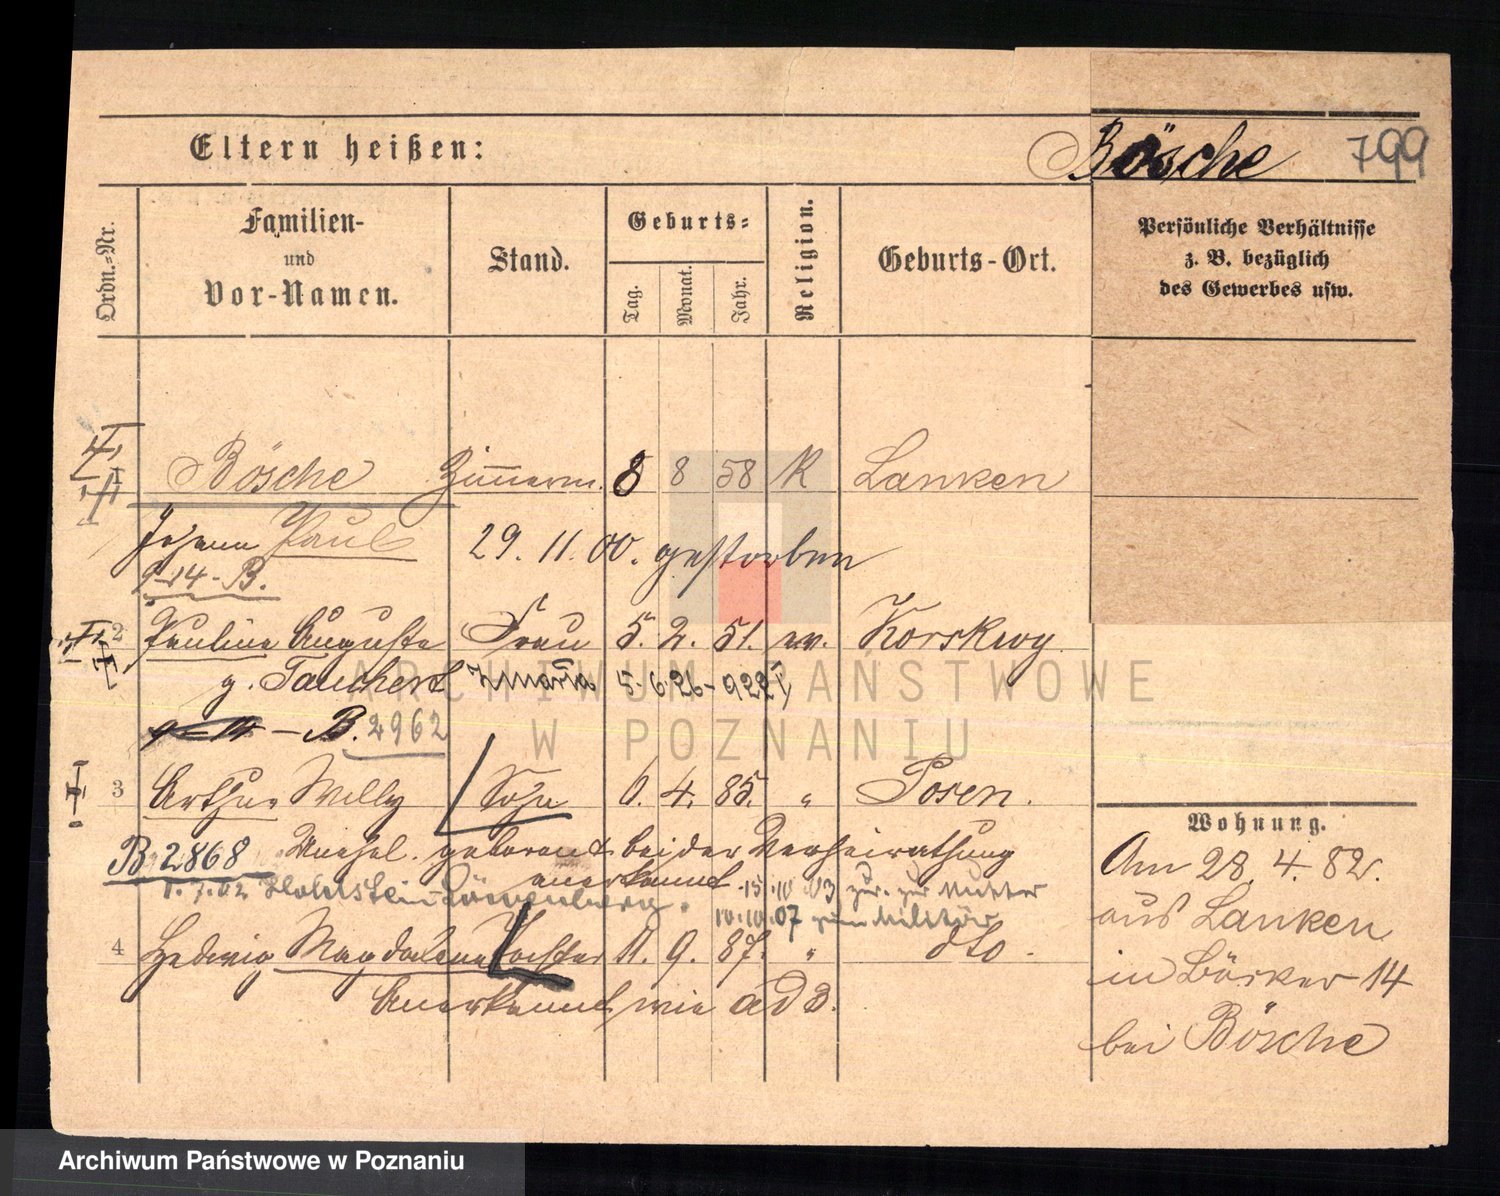 Eltern heißen:
Bösche 799
Ordn.-Nr.
Familien-
und
Vor-Namen.
Stand.
Geburts-
Tag.
Monat.
Jahr.
Religion.
Geburts-Ort.
Persönliche Verhältnisse
z. B. bezüglich
des Gewerbes usw.
Bösche Zimmerm. 8 8 58 K Lanken
Johann Paul 29. 11. 00. gestorben
9-14-B.
2 Pauline Auguste Frau 5. 2. 51. ev.
g. Tauchert 5. 6. 26 - 922
B. 2962
3 Arthur Willy Sohn 6. 4. 85. " Posen.
B. 2868 Unehel. geboren bei der Verheirathung
anerkannt 15.10.03 zur Mutter
1.7.02
10.10.07 zum Militär
4 Hedwig Magdalena Tochter 11. 9. 87. " dto.
Anerkannt wie ad 3.
Wohnung.
Am 28. 4. 82.
aus Lanken
in Bäcker 14
bei Bösche
ARCHIWUM PAŃSTWOWE
W POZNANIU
Archiwum Państwowe w Poznaniu